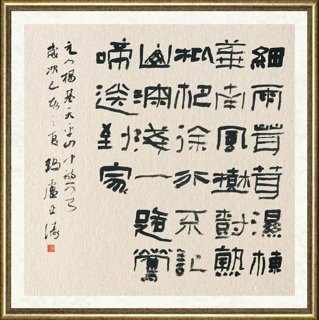 細雨茸茸濕楝
華南風樹樹熟
枇杷徐行不記
山深淺一路鶯
啼送到家
元人楊基天平山中詩
歲次